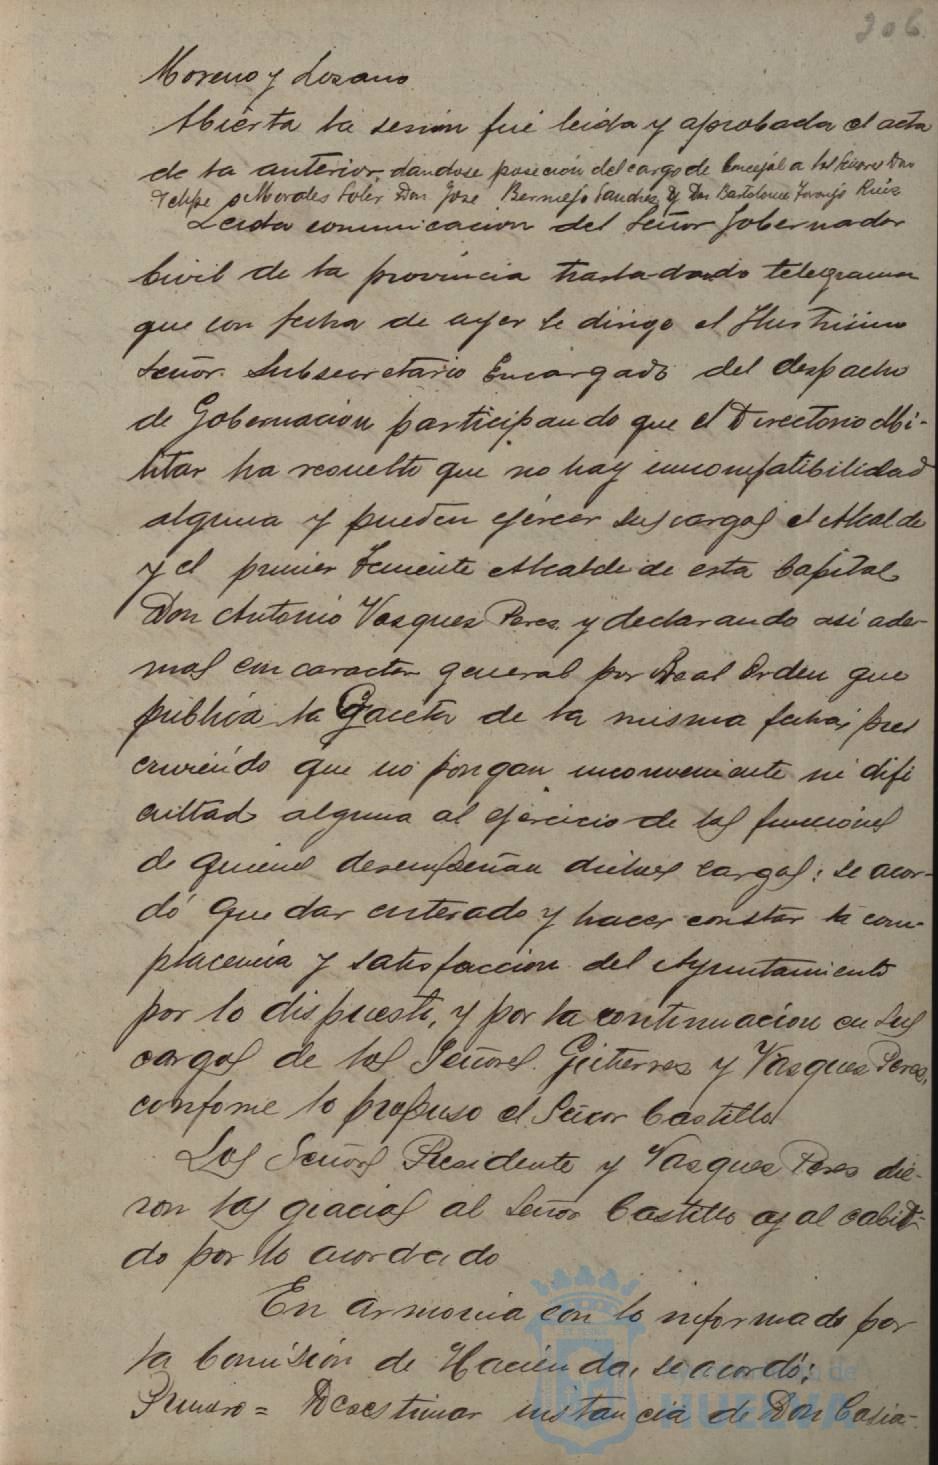 206
Moreno y Lozano
Abierta la sesión fué leida y aprobada el acta
de la anterior, dandose posecion del cargo de Concejal a los Señores Don
Felipe Morales Soler Don Jose Bermejo Sanchez y Don Bartolome Toronjo Ruiz
Leida comunicacion del Señor Gobernador
Civil de la provincia trasladando telegrama
que con fecha de ayer le dirige el Ilustrisimo
Señor Subsecretario Encargado del despacho
de Gobernación participando que el Directorio Mi-
litar ha resuelto que no hay incompatibilidad
alguna y pueden ejercer sus cargos el Alcalde
y el primer Teniente Alcalde de esta Capital
Don Antonio Vasques Peres y declarando asi ade-
mas con caracter general por Real Orden que
publica la Gaceta de la misma fecha, pres
cruiendo que no pongan inconveniente ni difi
cultad alguna al ejercicio de las funciones
de quienes desempeñan dichos cargos; se acor-
dó quedar enterado y hacer constar la com-
placencia y satisfaccion del Ayuntamiento
por lo dispuesto, y por la continuacion en sus
cargos de los Señores Gutierres y Vasques Peres,
conforme lo propuso el Señor Castillo
Los Señores Presidente y Vasques Peres die-
ron las gracias al Señor Castillo y al cabil-
do por lo acordado
En armonia con lo informado por
la Comisión de Hacienda, se acordó:
Primero = Desestimar instancia de Don Casia-
Ayuntamiento de
HUELVA